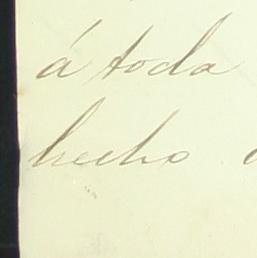 á toda
hecho